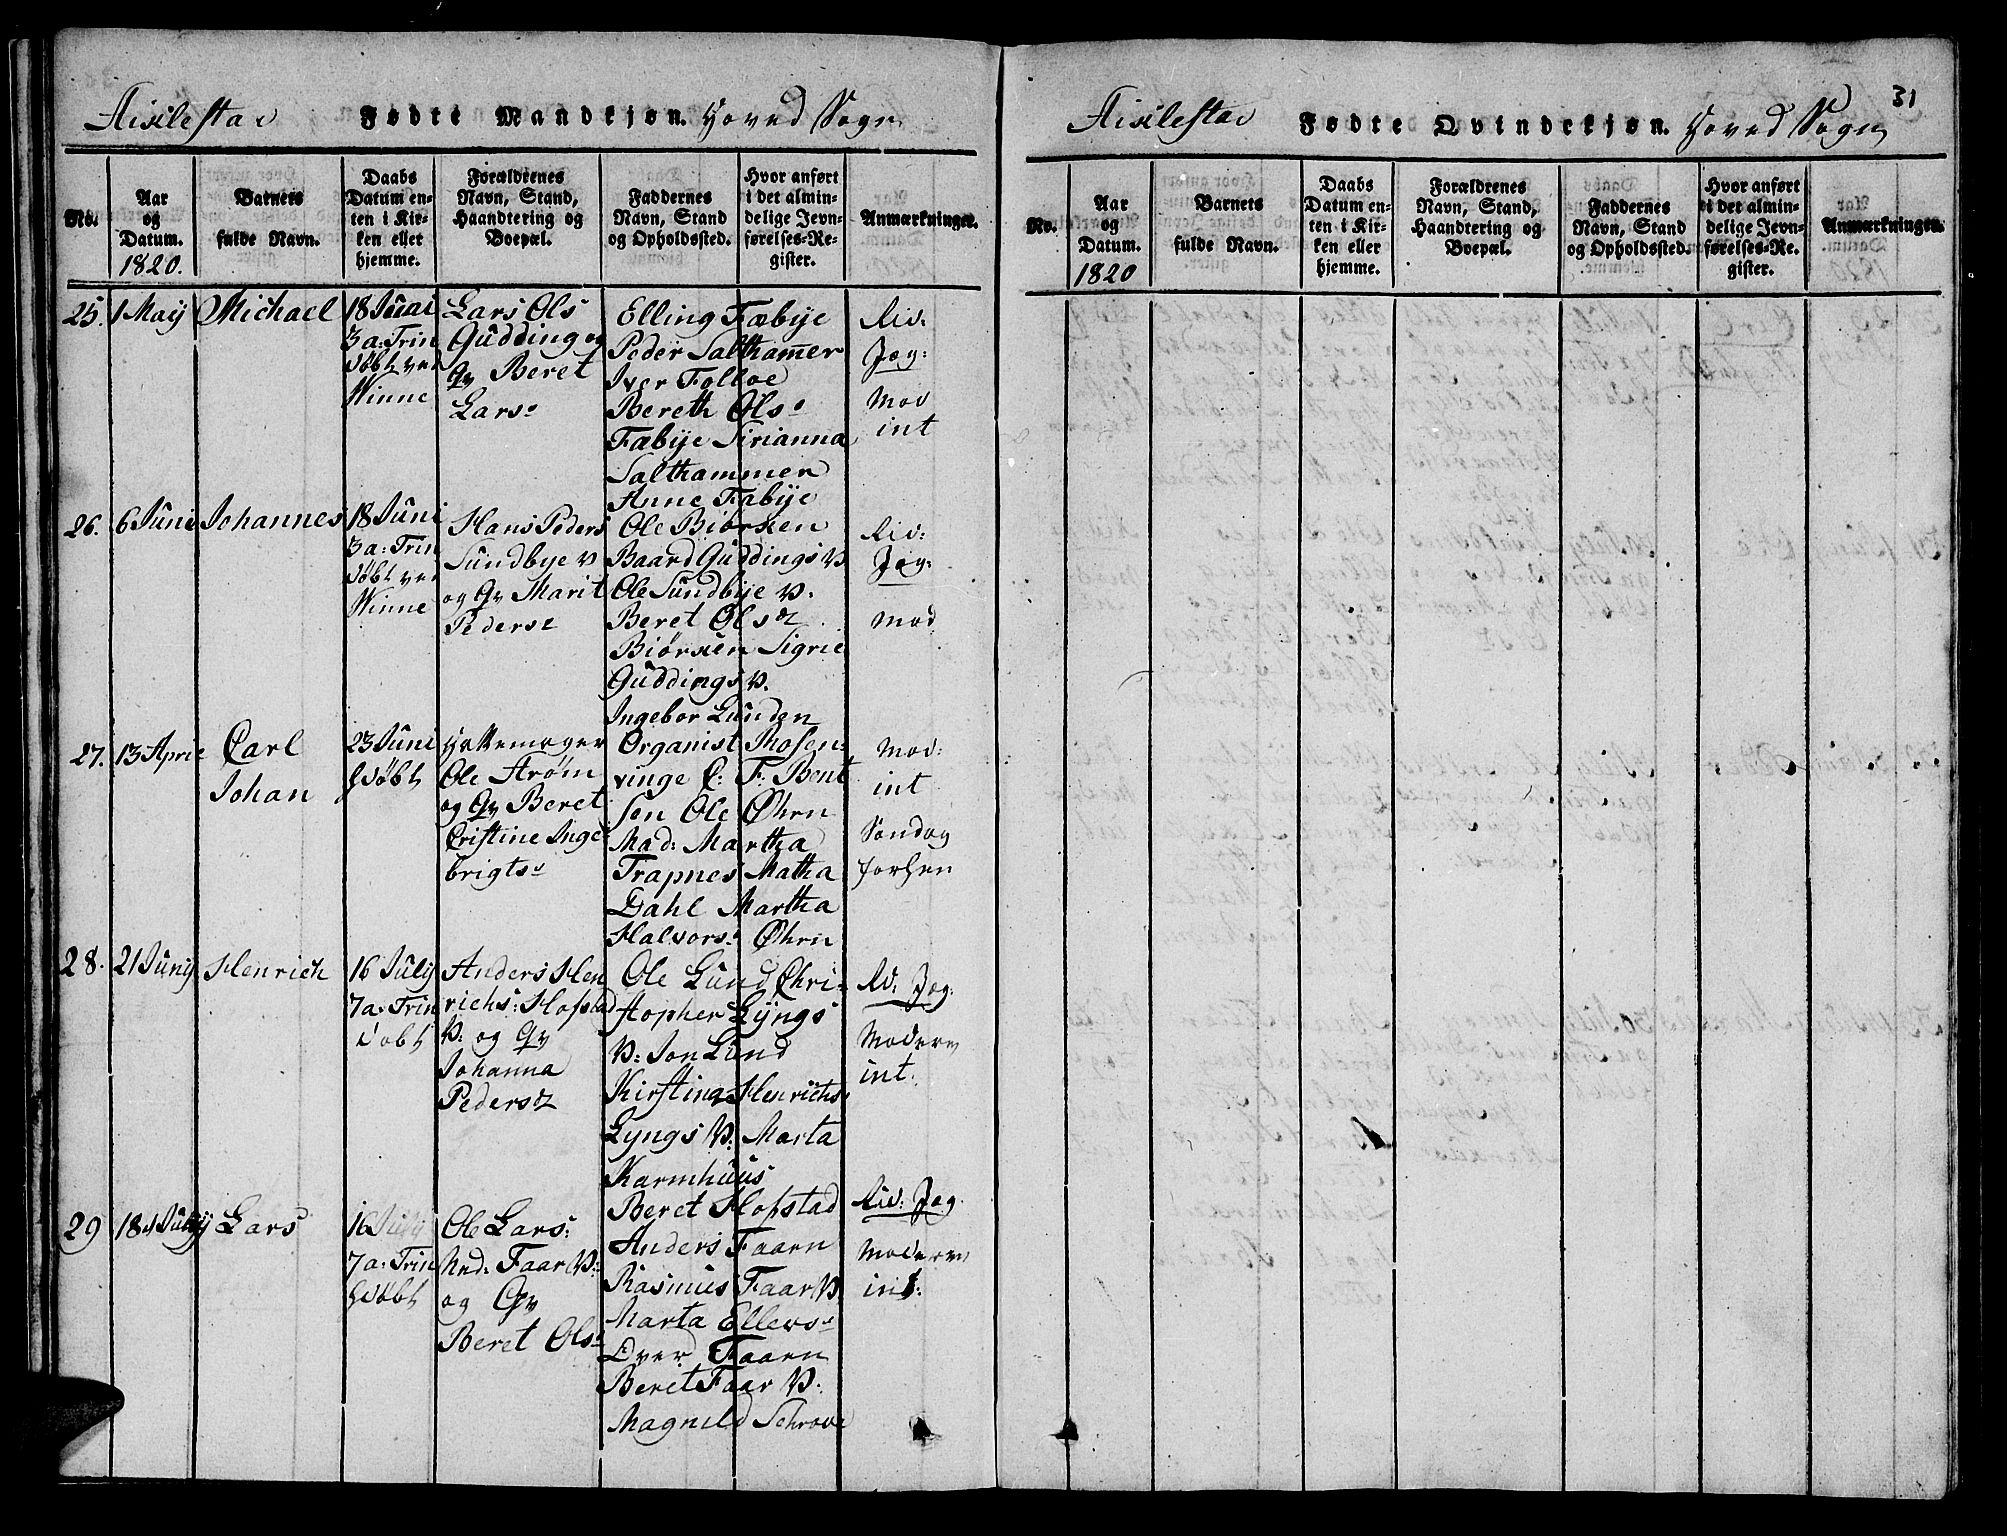 Aixlestad Fødte Mandkjøn. Hoved Sogn
No.
Aar
og
Datum.
1820.
Barnets
fulde Navn.
Daabs
Datum en-
ten i Kir-
ken eller
hjemme.
Forældrenes
Navn, Stand,
Haandtering og
Boepæl.
Faddernes
Navn, Stand
og Opholdssted.
Hvor anført
i det almin-
delige Jevn-
førelses-Re-
gister.
Anmærkninger.
25.
1 May
Michael
18 Juni
3 a: Trin
døbt ved
Winne
Lars Ols
Gudding og
Qv Beret
Lars
Elling Fæbye
Peder Salthamer
Iver Folloe
Bereth Ols
Fæbye Sirianna
Salthammer
Anne Fæbye
Mod
int
26.
6 Juni
Johannes
18 Juni
3 a: Trin
døbt ved
Winne
Hans Peders
Sundbye v
og Qv Marit
Peders
Ole Biørken
Baard Guddings v
Ole Sundbye v.
Beret Ols
Biørken Sigrie
Guddings v.
Ingebor Lunden
Mod
27.
13 April
Carl
Johan
23 Juni
døbt
Ole Strøm
og Qv Beret
Cristine Inge
brigts
Organist Rosen-
vinge C: F: Bent
sen Ole Øhrn
Mad: Martha
Trapnes Matha
Dahl Martha
Halvors Øhrn
Mod:
int
Søndag
28.
21 Juny
Henrich
16 July
7 a: Trin
døbt
Anders Hen
richs: Hofstad
v: og Qv
Johanna
Peders
Ole Lund Chri-
stopher Lyngs
v: Jon Lund
Kirstina Henrichs
Lyngs v: Marta
Karmhuus
Beret Hofstad
Moderen
int.
29
18 July
Lars
16 July
7 a: Trin
døbt
Ole Lars:
Faar v:
og Qv
Beret Ols
Anders Faarn
Rasmus Faar v
Marta Ellers
Over Faarn
Beret Faar v:
Magnild Schrove
Moderen
int:
Aixlestad Fødte Qvindekjøn. Hoved Sogn
31
No.
Aar
og
Datum.
1820
Barnets
fulde Navn.
Daabs
Datum en-
ten i Kir-
ken eller
hjemme.
Forældrenes
Navn, Stand,
Haandtering og
Boepæl.
Faddernes
Navn, Stand
og Opholdssted.
Hvor anført
i det almin-
delige Jevn-
førelses-Re-
gister.
Anmærkninger.